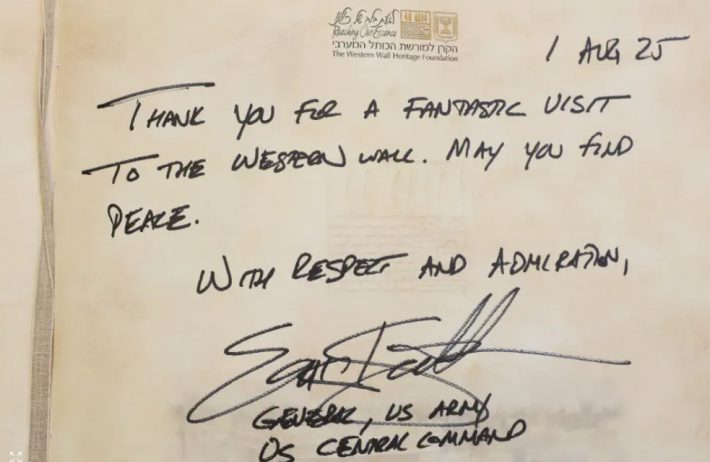 Reaching Our Essence
הקרן למורשת הכותל המערבי
The Western Wall Heritage Foundation
1 AUG 25
THANK YOU FOR A FANTASTIC VISIT
TO THE WESTERN WALL. MAY YOU FIND
PEACE.
WITH RESPECT AND ADMIRATION,
GENERAL, US ARMY
US CENTRAL COMMAND